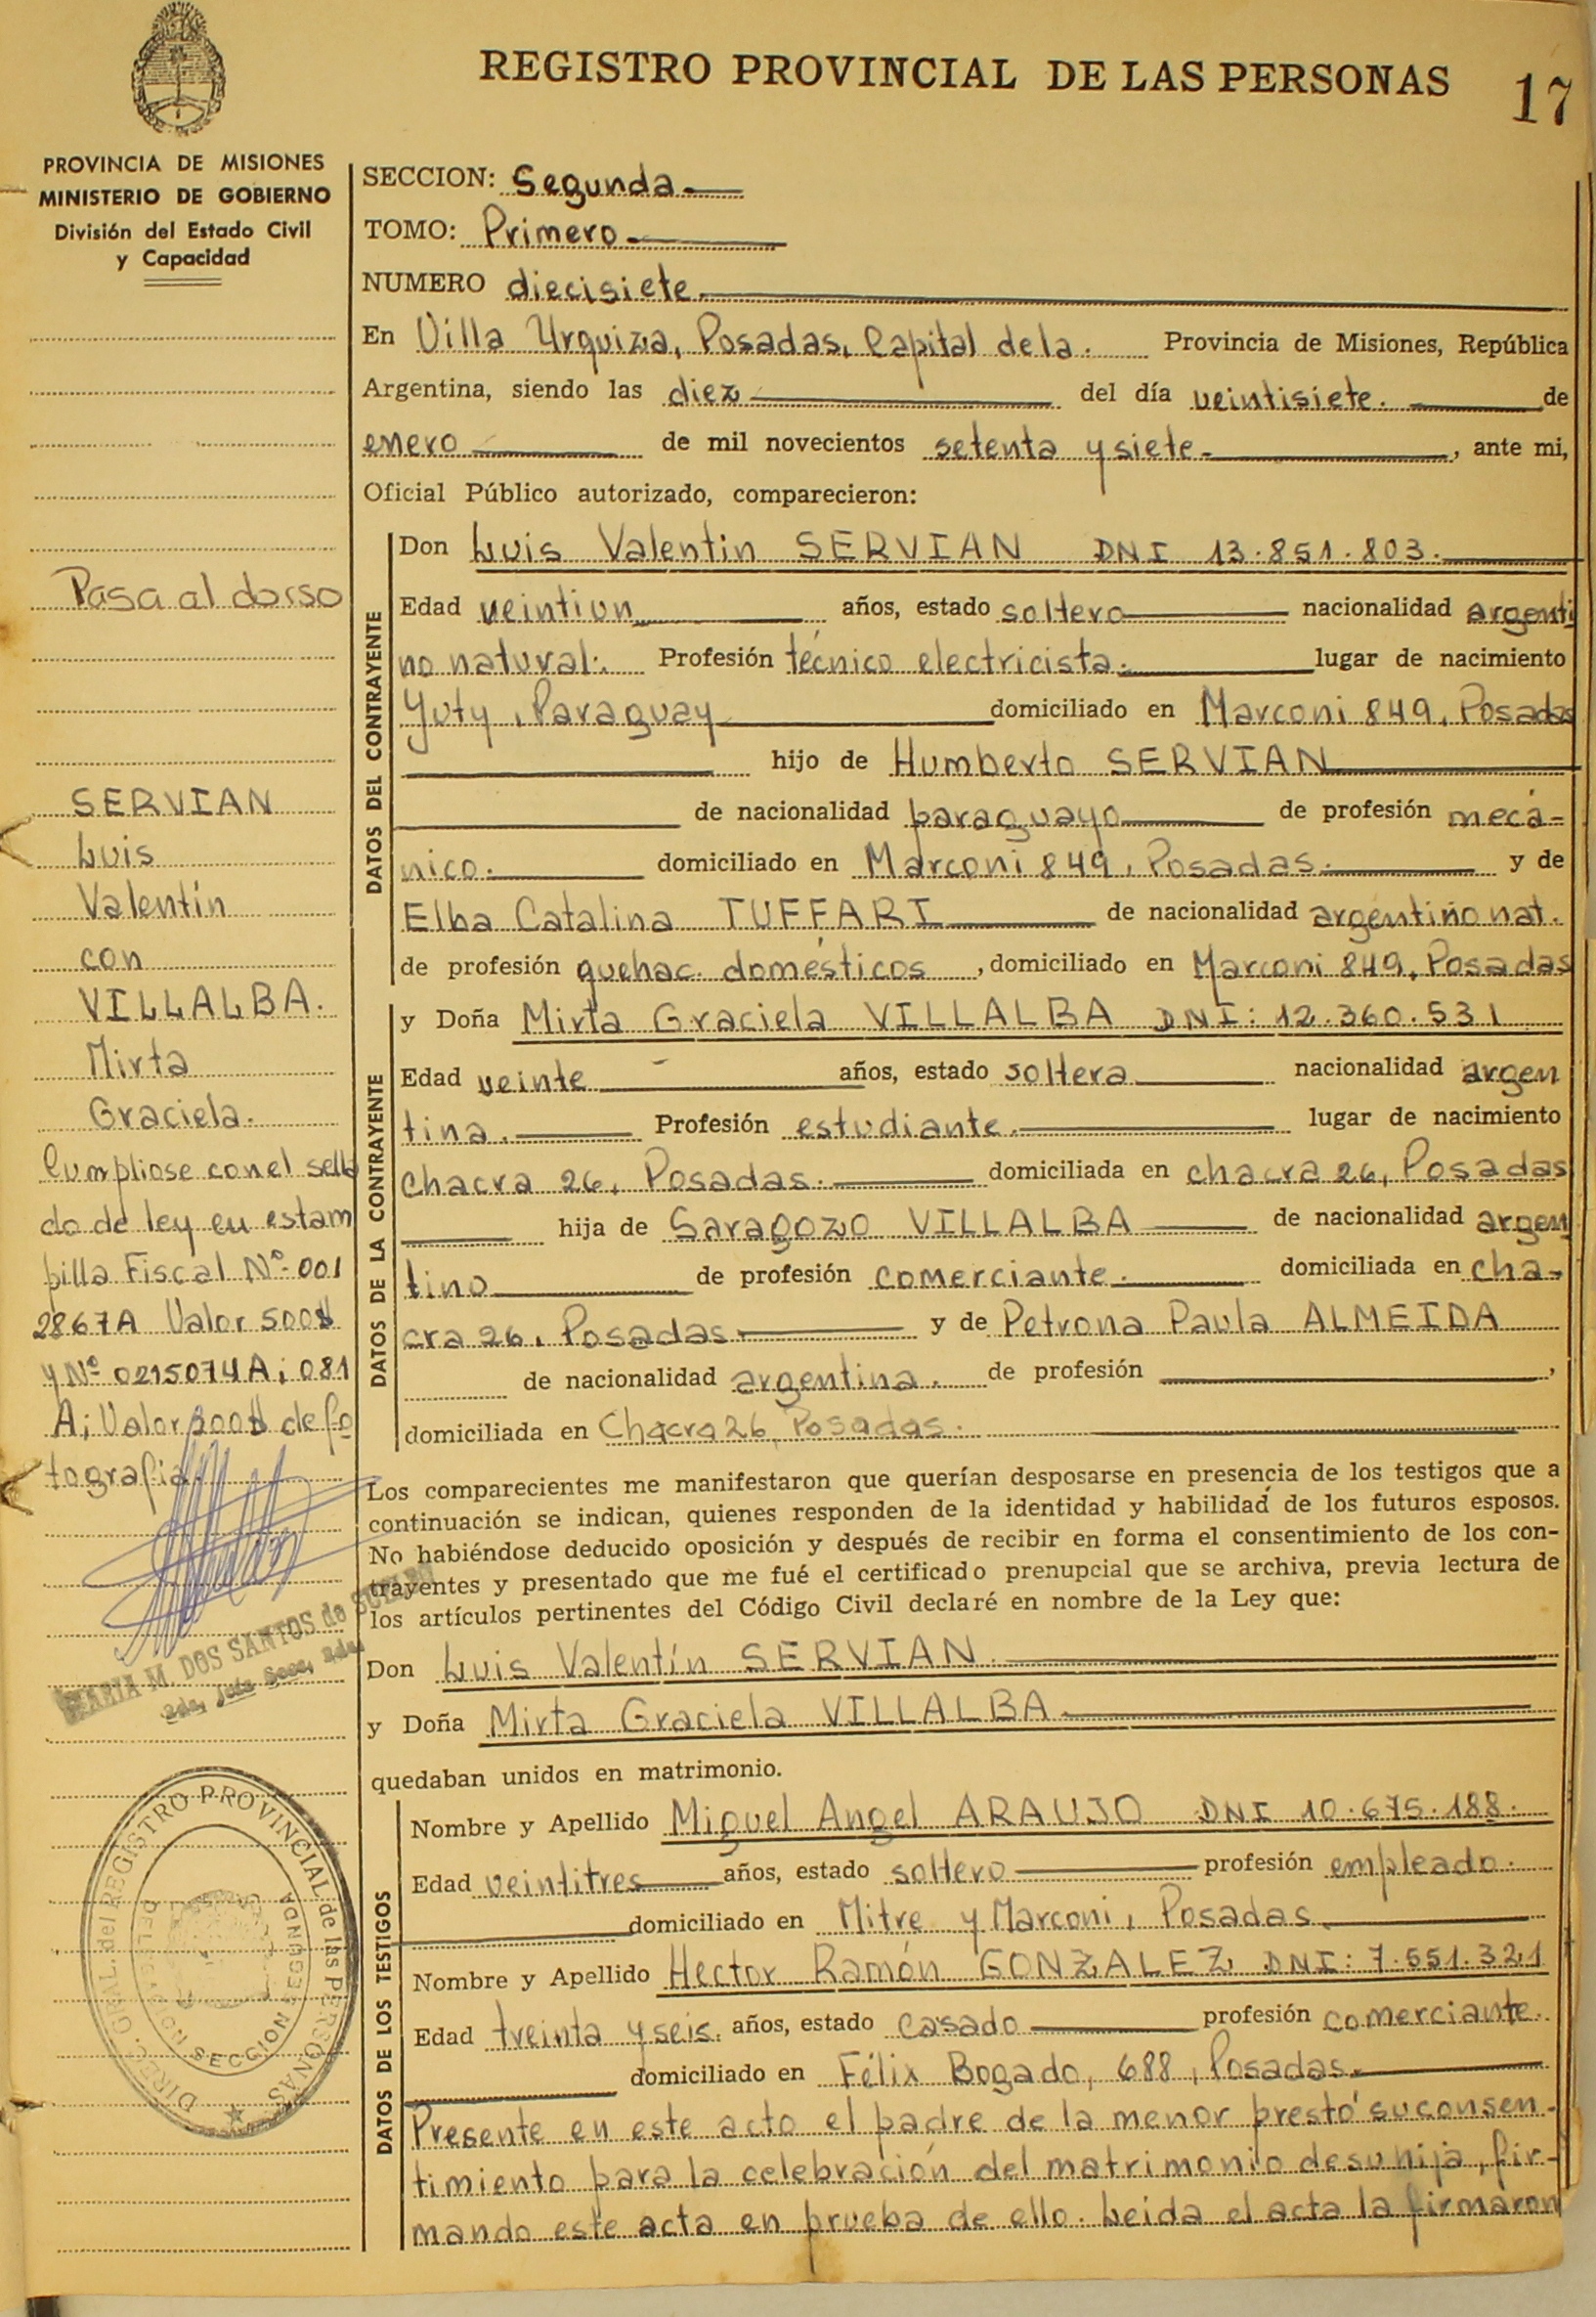 REGISTRO PROVINCIAL DE LAS PERSONAS
17
PROVINCIA DE MISIONES
MINISTERIO DE GOBIERNO
División del Estado Civil
y Capacidad
Pasa al dorso
SERVIAN
Luis
Valentín
con
VILLALBA.
Mirta
Graciela.
Cumpliose con el sella
do de ley en estam
pilla Fiscal Nº 001
2867A Valor 500$
y Nº 0215074A; 081
A; Valor 200$ de fo
tografia.
MARIA M. DOS SANTOS de
2da. Jefa Secc. 2da.
DIREC. GRAL. del REGISTRO PROVINCIAL de las PERSONAS
DELEGACION SECCION SEGUNDA
SECCION: Segunda.
TOMO: Primero.
NUMERO diecisiete.
En Villa Urquiza, Posadas, Capital de la. Provincia de Misiones, República
Argentina, siendo las diez del día veintisiete. de
enero de mil novecientos setenta y siete. , ante mi,
Oficial Público autorizado, comparecieron:
DATOS DEL CONTRAYENTE
Don Luis Valentin SERVIAN DNI 13.851.803.
Edad veintiun años, estado soltero nacionalidad argenti
no natural. Profesión técnico electricista. lugar de nacimiento
Yuty, Paraguay domiciliado en Marconi 849, Posadas
hijo de Humberto SERVIAN
de nacionalidad paraguayo de profesión mecá-
nico. domiciliado en Marconi 849, Posadas. y de
Elba Catalina TUFFARI de nacionalidad argentino nat.
de profesión quehac. domésticos , domiciliado en Marconi 849, Posadas
DATOS DE LA CONTRAYENTE
y Doña Mirta Graciela VILLALBA DNI: 12.360.531
Edad veinte años, estado soltera nacionalidad argen
tina. Profesión estudiante. lugar de nacimiento
chacra 26, Posadas. domiciliada en chacra 26, Posadas
hija de Saragozo VILLALBA de nacionalidad argen
tino de profesión comerciante. domiciliada en cha-
cra 26, Posadas y de Petrona Paula ALMEIDA
de nacionalidad argentina. de profesión ,
domiciliada en Chacra 26, Posadas.
Los comparecientes me manifestaron que querían desposarse en presencia de los testigos que a
continuación se indican, quienes responden de la identidad y habilidad de los futuros esposos.
No habiéndose deducido oposición y después de recibir en forma el consentimiento de los con-
trayentes y presentado que me fué el certificado prenupcial que se archiva, previa lectura de
los artículos pertinentes del Código Civil declaré en nombre de la Ley que:
Don Luis Valentín SERVIAN.
y Doña Mirta Graciela VILLALBA.
quedaban unidos en matrimonio.
DATOS DE LOS TESTIGOS
Nombre y Apellido Miguel Angel ARAUJO DNI 10.675.188.
Edad veintitres años, estado soltero profesión empleado.
domiciliado en Mitre y Marconi, Posadas.
Nombre y Apellido Hector Ramón GONZALEZ DNI: 7.551.321
Edad treinta y seis. años, estado casado profesión comerciante.
domiciliado en Félix Bogado, 688, Posadas.
Presente en este acto el padre de la menor prestó su consen-
timiento para la celebración del matrimonio de su hija, fir-
mando este acta en prueba de ello. Leida el acta la firmaron